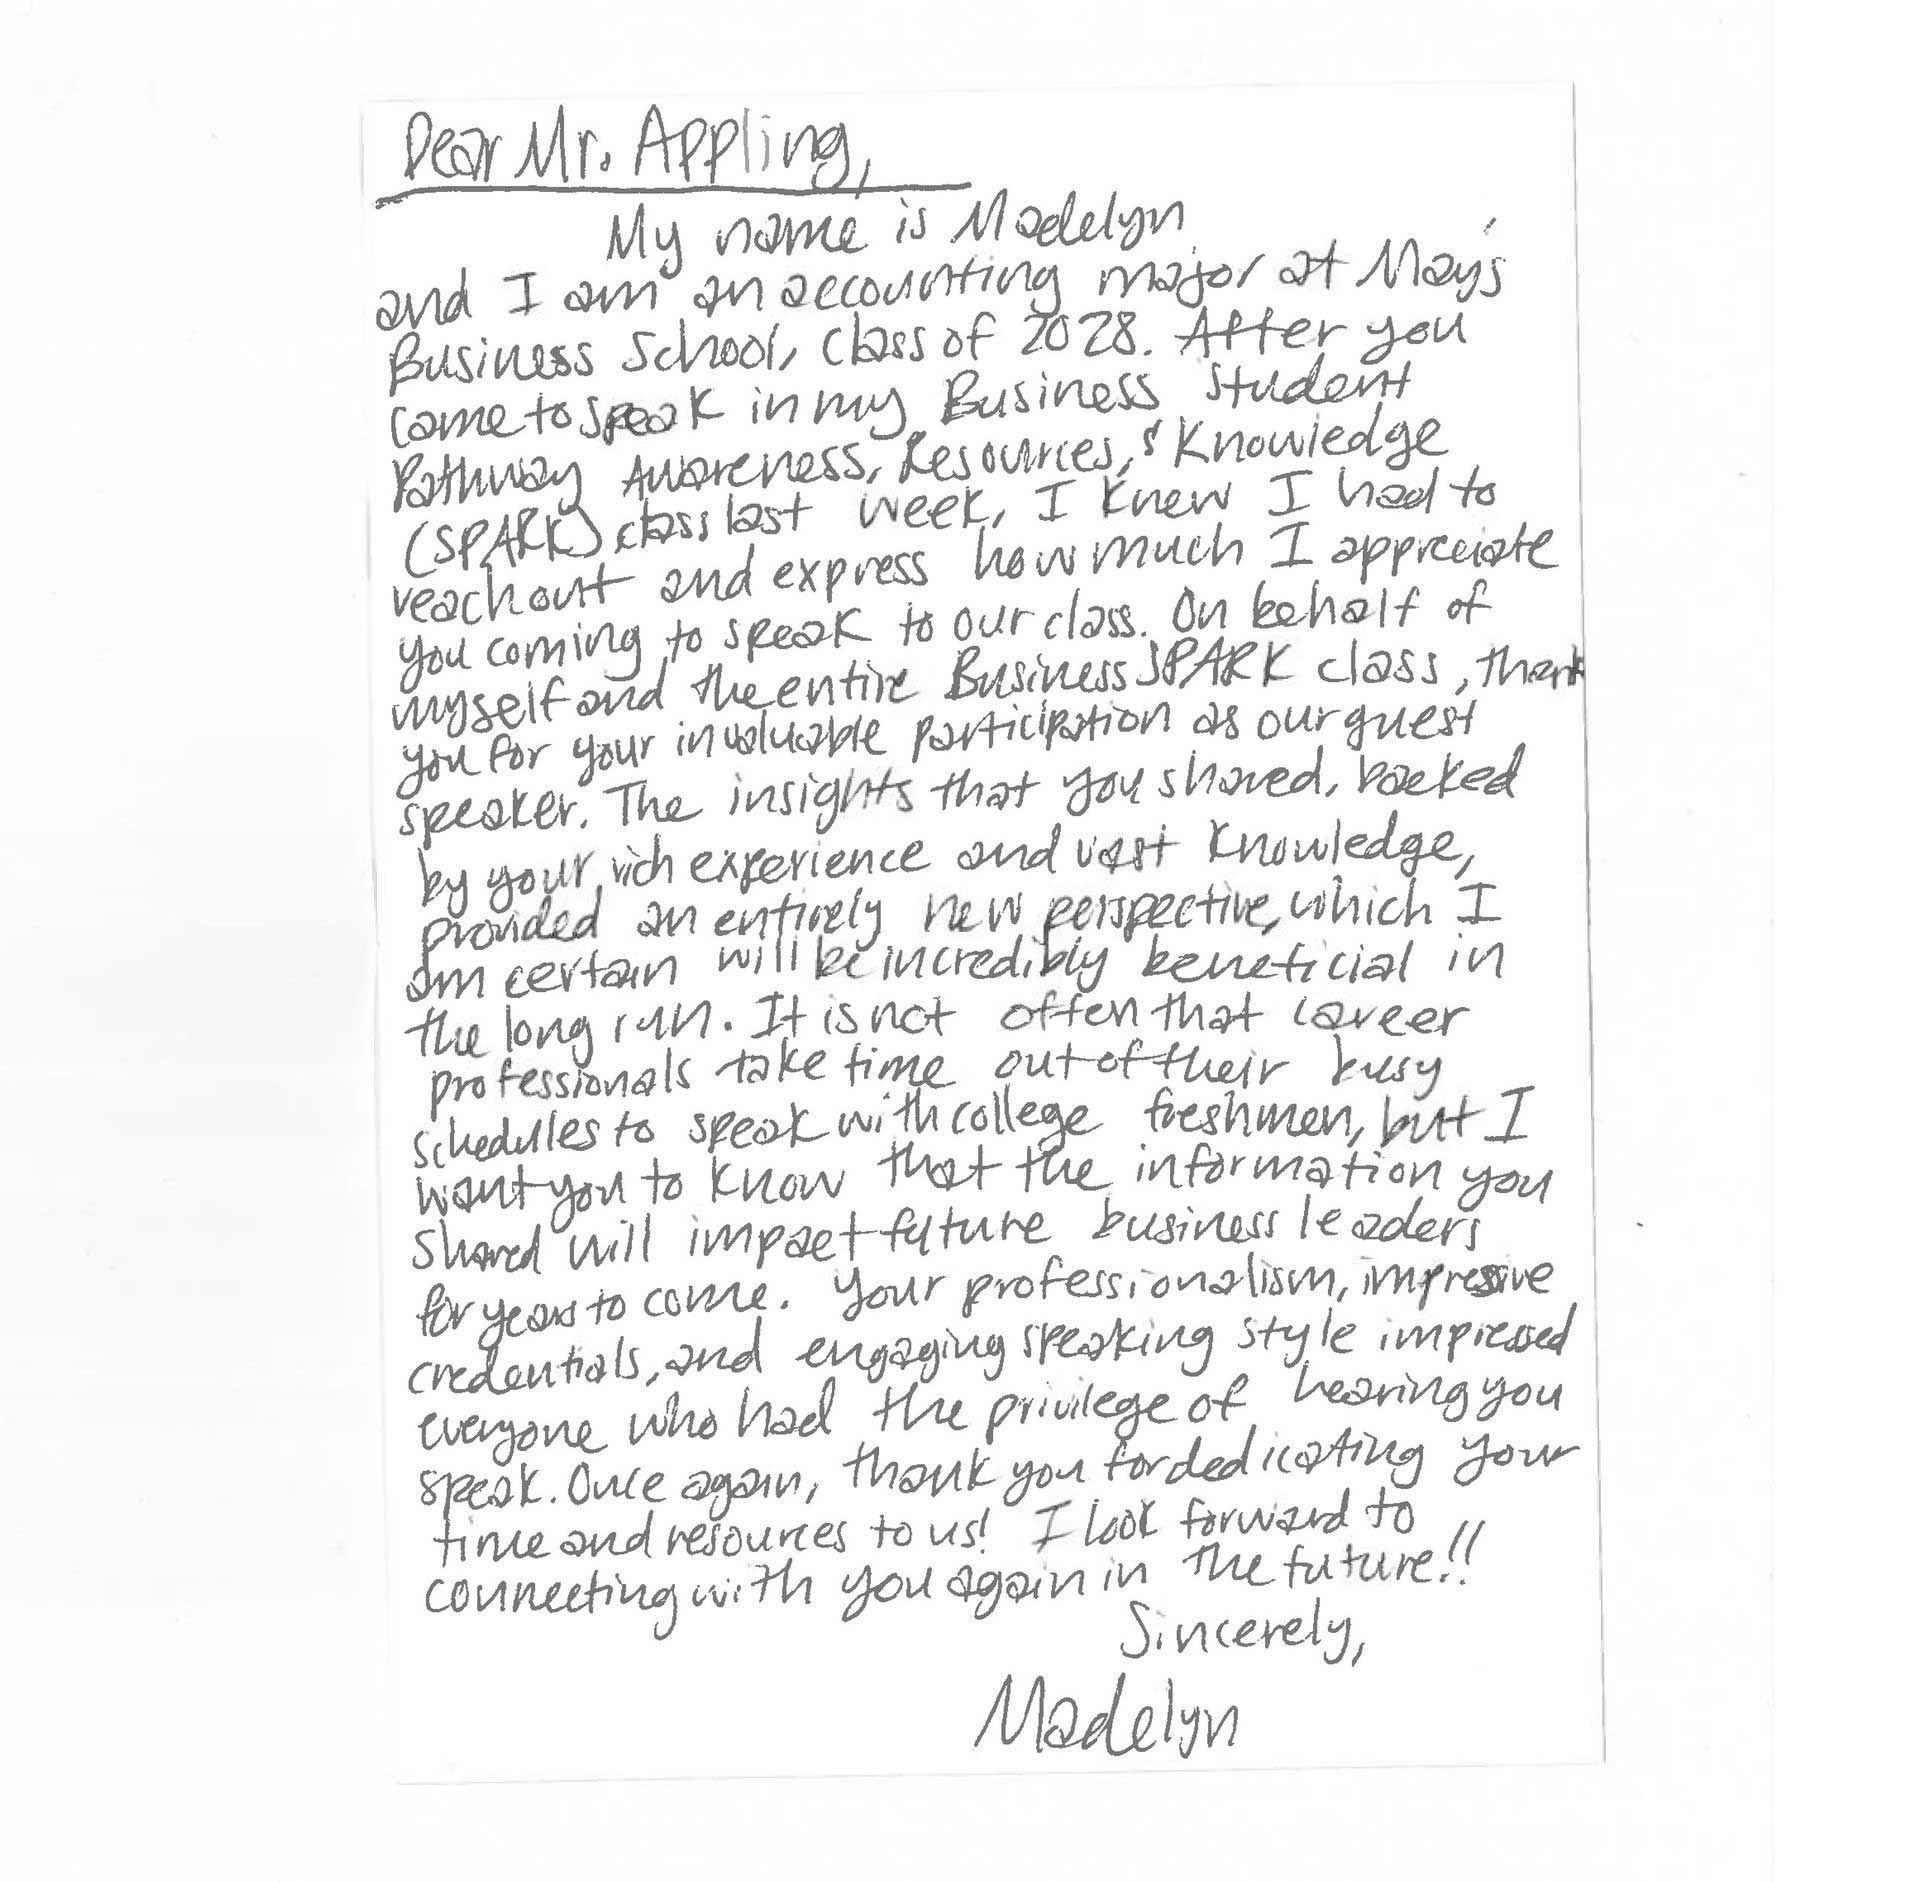 Dear Mr. Appling,
My name is Madelyn
and I am an accounting major at May's
Business School, class of 2028. After you
came to speak in my Business Student
Pathway Awareness, Resources, & Knowledge
(SPARK) class last week, I knew I had to
reach out and express how much I appreciate
you coming to speak to our class. On behalf of
myself and the entire Business SPARK class, thank
you for your invaluable participation as our guest
speaker. The insights that you shared, backed
by your rich experience and vast knowledge,
provided an entirely new perspective, which I
am certain will be incredibly beneficial in
the long run. It is not often that career
professionals take time out of their busy
schedules to speak with college freshmen, but I
want you to know that the information you
shared will impact future business leaders
for years to come. Your professionalism, impressive
credentials, and engaging speaking style impressed
everyone who had the privilege of hearing you
speak. Once again, thank you for dedicating your
time and resources to us! I look forward to
connecting with you again in the future!!
Sincerely,
Madelyn